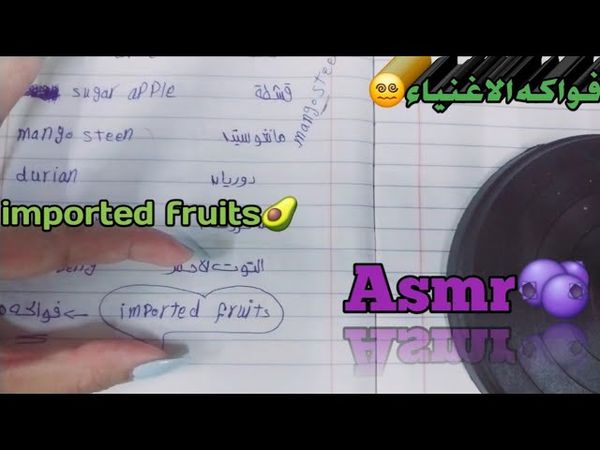 فواكه الاغنياء
sugar apple قشطة
mangosteen
mangosteen مانغوستين
durian دوريان
imported fruits
التوت الاحمر
imported fruits ← فواكه
Asmr